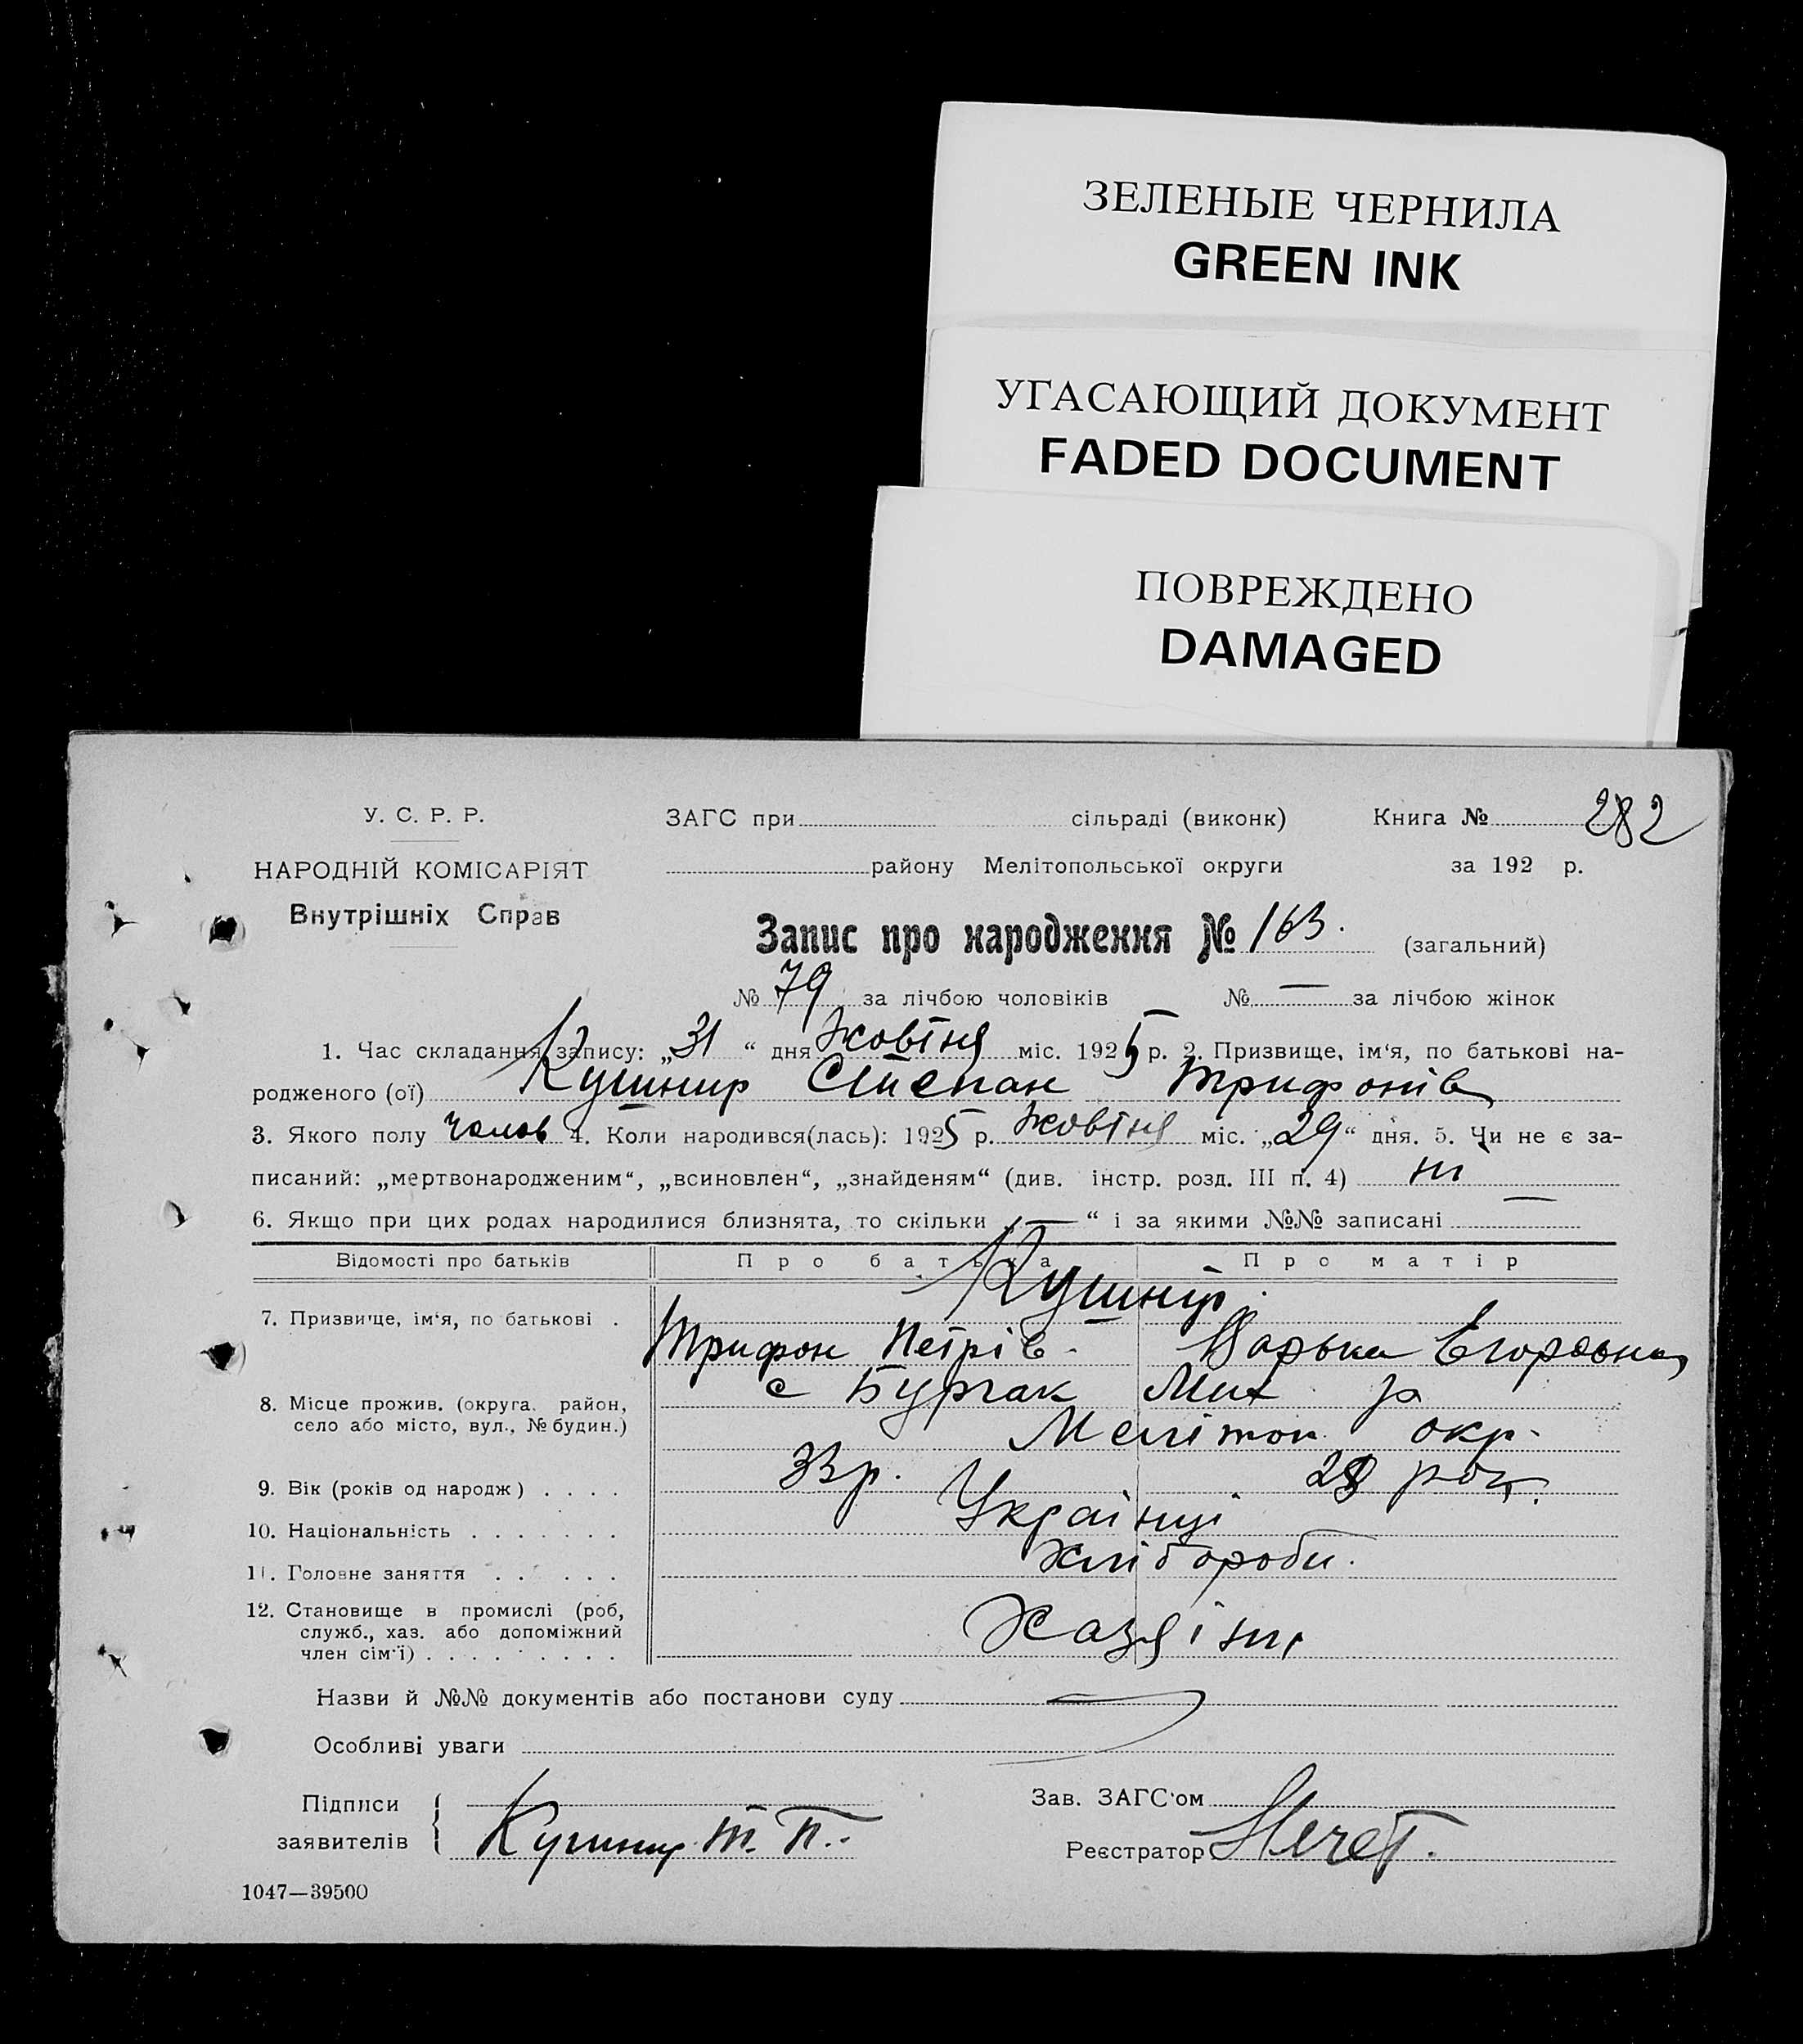 ЗЕЛЕНЫЕ ЧЕРНИЛА
GREEN INK
УГАСАЮЩИЙ ДОКУМЕНТ
FADED DOCUMENT
ПОВРЕЖДЕНО
DAMAGED
У. С. Р. Р. ЗАГС при сільраді (виконк) Книга № 282
НАРОДНІЙ КОМІСАРІЯТ району Мелітопольської округи за 192 р.
Внутрішніх Справ
Запис про народження № 163. (загальний)
№ 79 за лічбою чоловіків № — за лічбою жінок
1. Час складання запису: „31“ дня жовтня міс. 1925 р. 2. Призвище, ім‘я, по батькові на-
родженого (ої) Кушнир Степан Трифонів
3. Якого полу чолов 4. Коли народився(лась): 1925 р. жовтня міс. „29“ дня. 5. Чи не є за-
писаний: „мертвонародженим“, „всиновлен“, „знайденям“ (див. інстр. розд. III п. 4) ні
6. Якщо при цих родах народилися близнята, то скільки „—“ і за якими №№ записані —
Відомості про батьків Про батька Про матір
Кушнір.
7. Призвище, ім‘я, по батькові .
Трифон Петрів. Варька Егоровна
8. Місце прожив. (округа, район, с Бургак Мих р
село або місто, вул., № будин.) Меліто п. окр.
9. Вік (років од народж) . . . . 33 р. 28 рок.
10. Національність . . . . . . . Українці
11. Головне заняття . . . . . . Хлібороби.
12. Становище в промислі (роб, служб., хаз. або допоміжний член сім‘ї) . . . . . . . . . Хазяїни
Назви й №№ документів або постанови суду —
Особливі уваги
Підписи Зав. ЗАГС‘ом
заявителів Кушнир Т. П. Реєстратор
1047—39500